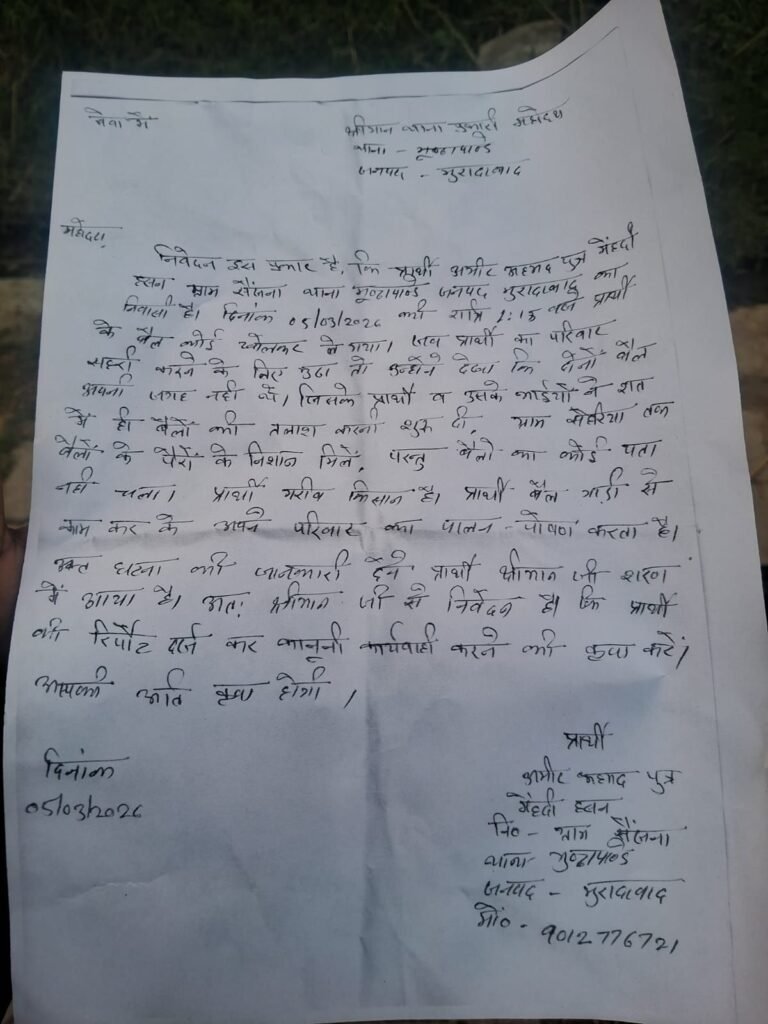 सेवा में
श्रीमान थाना प्रभारी महोदय
थाना - मूण्ढापाण्डे
जनपद - मुरादाबाद
महोदय,
निवेदन इस प्रकार है, कि प्रार्थी अमीर अहमद पुत्र मेंहदी
हसन ग्राम सैंजना थाना मूण्ढापाण्डे जनपद मुरादाबाद का
निवासी है। दिनांक 05/03/2026 की रात्रि बजे प्रार्थी
के बैल कोई खोलकर ले गया। जब प्रार्थी का परिवार
सहरी करने के लिए उठा तो उन्होंने देखा कि दोनों बैल
अपनी जगह नही थे। जिसके प्रार्थी व उसके भाईयों ने रात
में ही बैलों की तलाश करनी शुरू दी, ग्राम तक
बैलों के पैरों के निशान मिलें, परन्तु बैलो का कोई पता
नही चला। प्रार्थी गरीब किसान है। प्रार्थी बैल गाड़ी से
काम कर के अपने परिवार का पालन-पोषण करता है।
उक्त घटना की जानकारी देने प्रार्थी श्रीमान जी शरण
में आया है। अतः श्रीमान जी से निवेदन है। कि प्रार्थी
की रिर्पोट दर्ज कर कानूनी कार्यवाही करने की कृपा करें।
आपकी अति कृपा होगी।
प्रार्थी
दिनांक
अमीर अहमद पुत्र
05/03/2026
मेंहदी हसन
नि० - ग्राम सैंजना
थाना मूण्ढापाण्डे
जनपद - मुरादाबाद
मो० - 9012776721